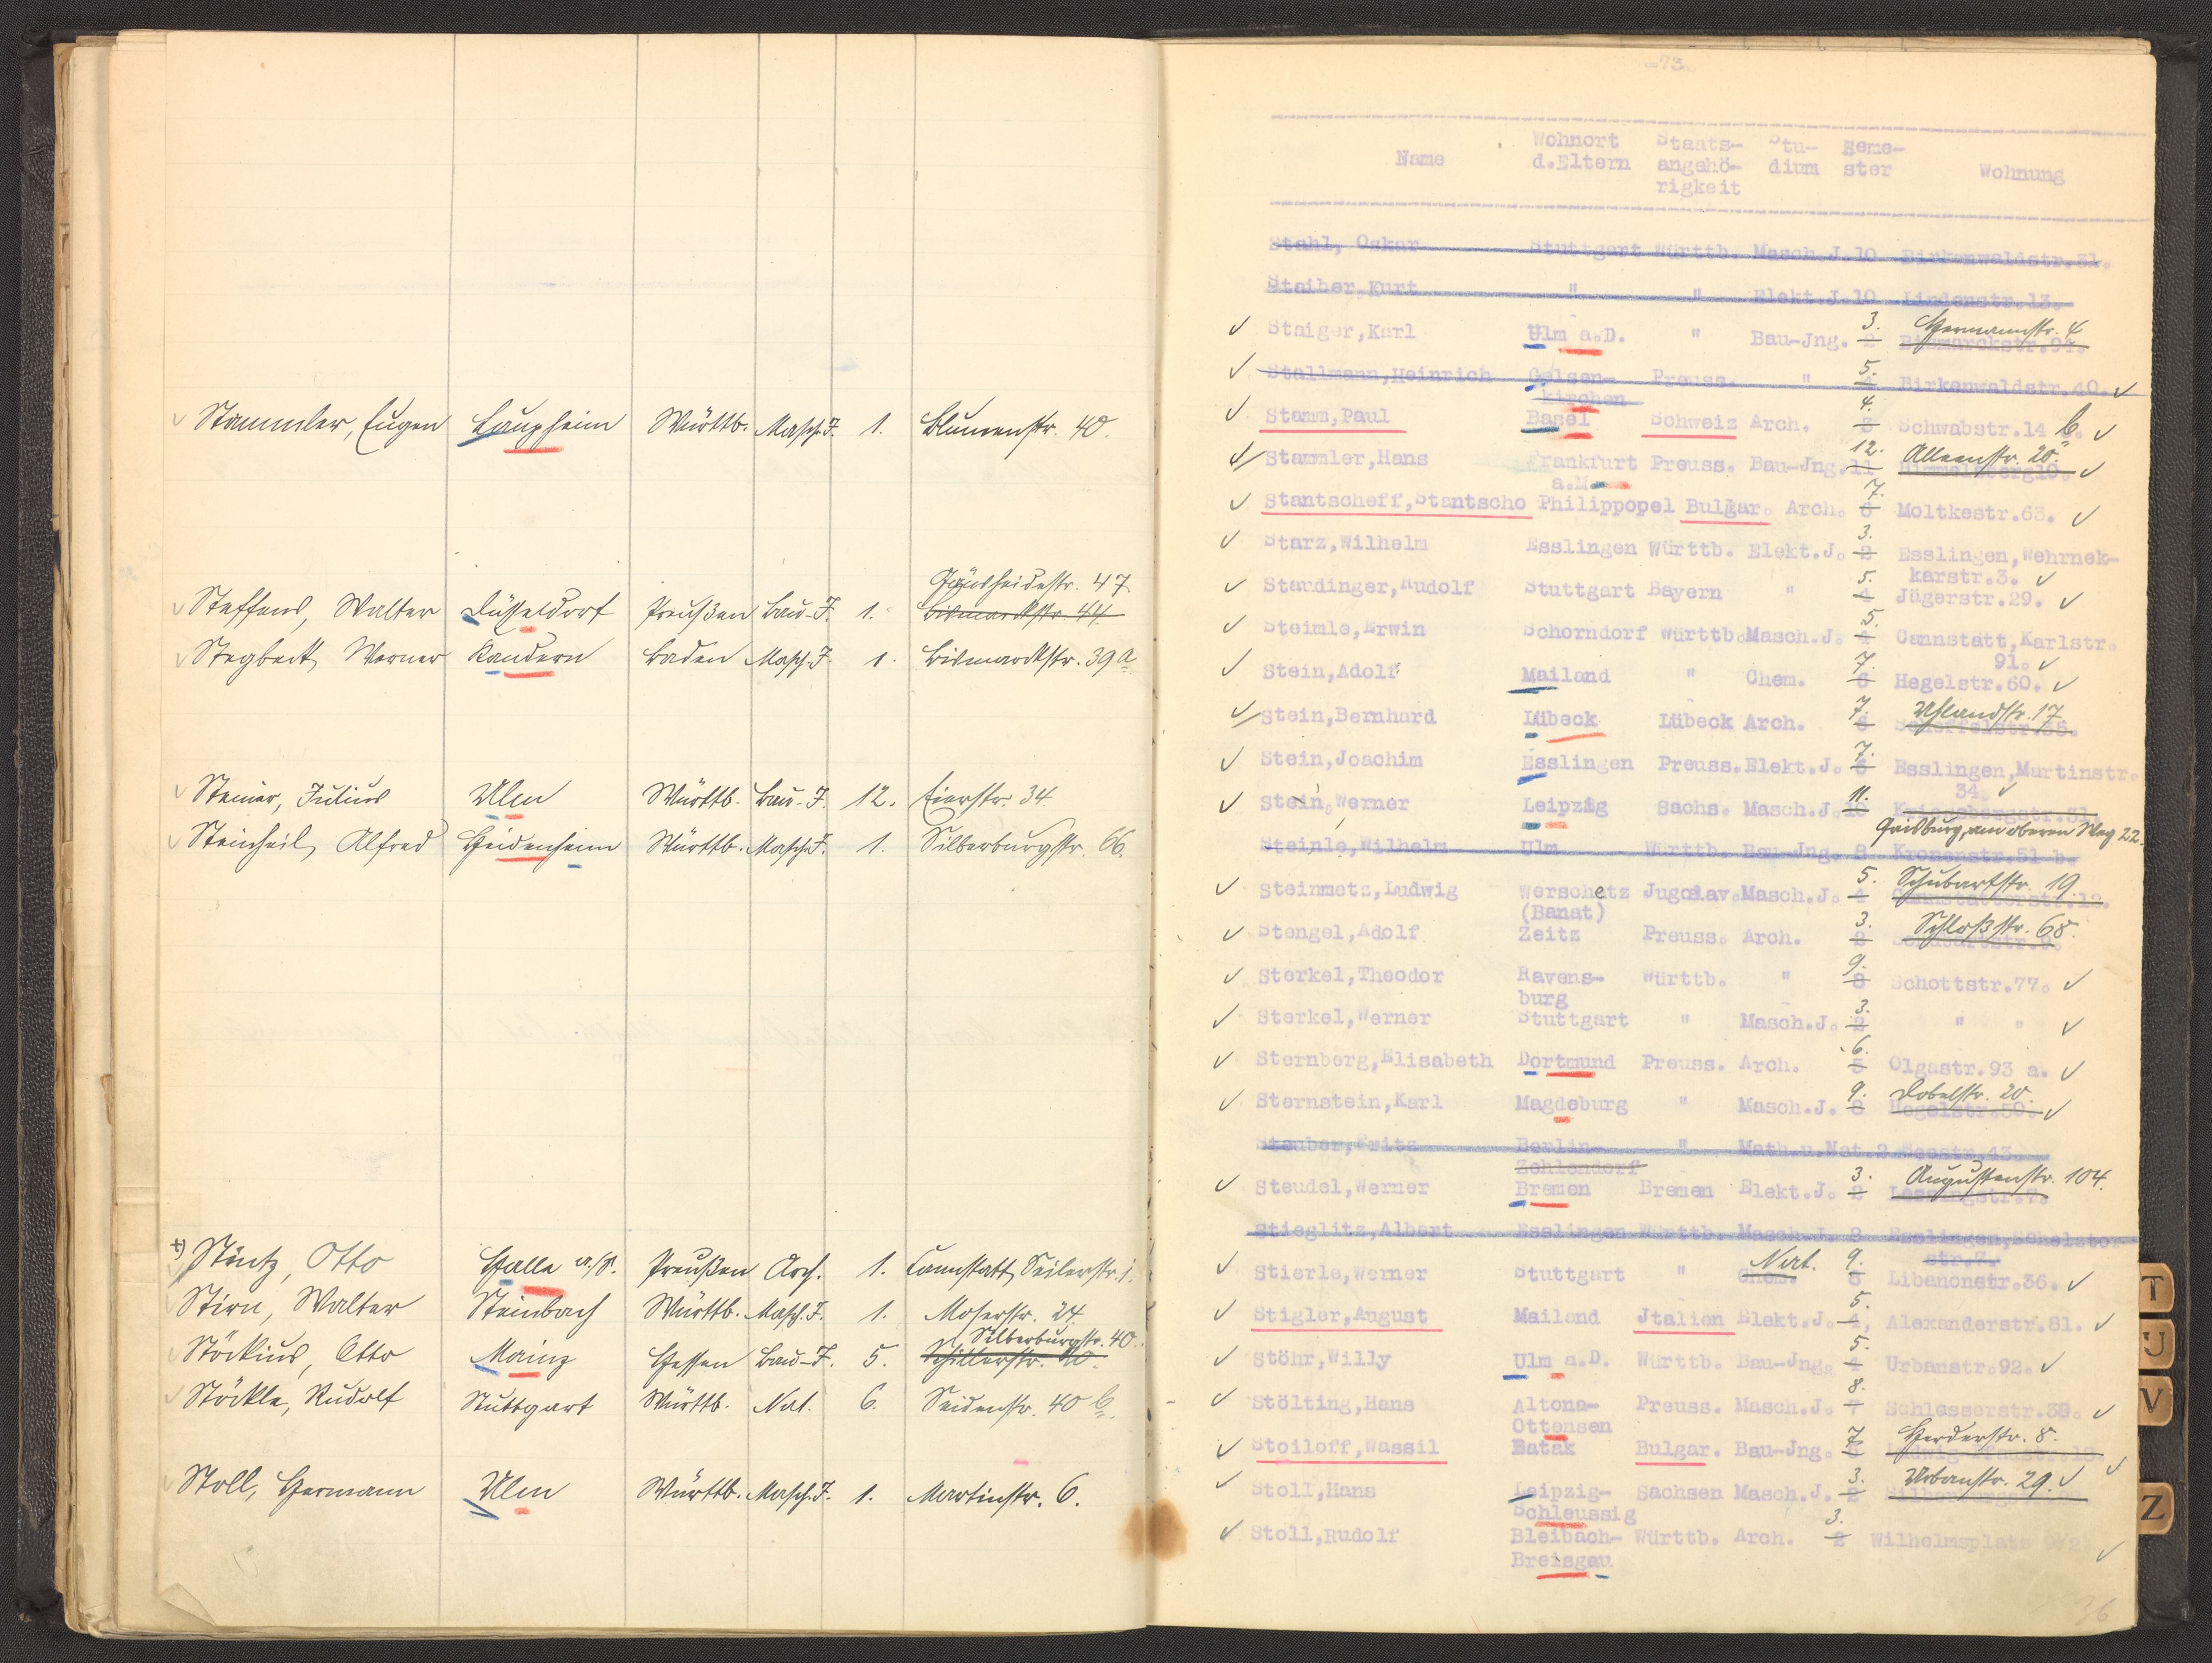 Stammler, Eugen Laupheim Württb. Masch. J. 1. Blumenstr. 40.
47
Steffens, Walter Düsseldorf Preußen Bau-J. 1. Bismarckstr. 44
Stegbeck, Werner Kandern Baden Masch. J. 1. Bismarckstr. 39 a
Steiner, Julius Ulm Württb. Bau-J. 12. Eierstr. 34
Steinheil, Alfred Heidenheim Württb. Masch. J. 1. Silberburgstr. 66.
+) Stintz, Otto Halle a/S. Preußen Arch. 1. Cannstatt, Seilerstr. 1.
Stirn, Walter Steinbach Württb. Masch. J. 1. Moserstr. 24.
Silberburgstr. 40.
Stöckius, Otto Mainz Hessen Bau-J. 5. Schillerstr.
Stöckle, Rudolf Stuttgart Württb. Nat. 6. Seidenstr. 40 b.
Stoll, Hermann Ulm Württb. Masch. J. 1. Martinstr. 6.
-73-
Name Wohnort d.Eltern Staats-angehö-rigkeit Stu-dium Seme-ster Wohnung
Stahl, Oskar Stuttgart Württb. Masch.J.10 Birkenwaldstr.31.
Staiber,Kurt " " Elekt.J.10 Lindenstr.13.
3. Hermannstr. 4
Staiger,Karl Ulm a.D. " Bau-Jng. 2 Bismarckstr.94.
5.
Stallmann,Heinrich Gelsen- Preuss. " 4 Birkenwaldstr.40.
kirchen
4.
Stamm,Paul Basel Schweiz Arch. 3 Schwabstr.14 b.
12. Alleenstr. 20.
Stammler,Hans Frankfurt Preuss. Bau-Jng.11
a.M.
7.
Stantscheff,Stantscho Philippopel Bulgar. Arch. 6 Moltkestr.63.
3.
Starz,Wilhelm Esslingen Württb. Elekt.J. 2 Esslingen,Wehrnek-
karstr.3.
5.
Staudinger,Rudolf Stuttgart Bayern " 4 Jägerstr.29.
5.
Steimle,Erwin Schorndorf Württb.Masch.J. 4 Cannstatt,Karlstr.
91.
7.
Stein,Adolf Mailand " Chem. 6 Hegelstr.60.
7. Uhlandstr. 17
Stein,Bernhard Lübeck Lübeck Arch. 6 Scheffelstr.38.
7.
Stein,Joachim Esslingen Preuss.Elekt.J. 6 Esslingen,Martinstr.
34.
11.
Stein,Werner Leipzig Sachs. Masch.J.10 Kriegsbergstr.31.
Gaisburg, am oberen Weg 22.
Steinle,Wilhelm Ulm Württb. Bau-Jng. 8 Kronenstr.51 b.
5. Schubartstr. 19.
Steinmetz,Ludwig Werschetz Jugoslav.Masch.J. 4 Cannstatterstr.12.
(Banat)
3. Schloßstr. 68.
Stengel,Adolf Zeitz Preuss. Arch. 2
9.
Sterkel,Theodor Ravens- Württb. " 8 Schottstr.77.
burg
3.
Sterkel,Werner Stuttgart " Masch.J. 2 " "
6.
Sternberg,Elisabeth Dortmund Preuss. Arch. 5 Olgastr.93 a.
9. Dobelstr. 20.
Sternstein,Karl Magdeburg " Masch.J. 8 Hegelstr.50.
Steuber,Fritz Berlin- " Math.u.Nat.2 Seestr.43.
Zehlendorf
3. Augustenstr. 104.
Steudel,Werner Bremen Bremen Elekt.J. 2 Lessingstr.7.
Stieglitz,Albert Esslingen Württb. Masch.J. 8 Esslingen,
str.7.
Nat. 9.
Stierle,Werner Stuttgart " Chem. 8 Libanonstr.36.
5.
Stigler,August Mailand Jtalien Elekt.J. 4, Alexanderstr.81.
5.
Stöhr,Willy Ulm a.D. Württb. Bau-Jng. 4 Urbanstr.92.
8.
Stölting,Hans Altona- Preuss. Masch.J. 7 Schlosserstr.38.
Ottensen
7. Herderstr. 8.
Stoiloff,Wassil Batak Bulgar. Bau-Jng. 6
3. Urbanstr. 29.
Stoll,Hans Leipzig- Sachsen Masch.J. 2
Schleussig
3.
Stoll,Rudolf Bleibach- Württb. Arch. 2 Wilhelmsplatz
Breisgau
36
T
U
V
Z